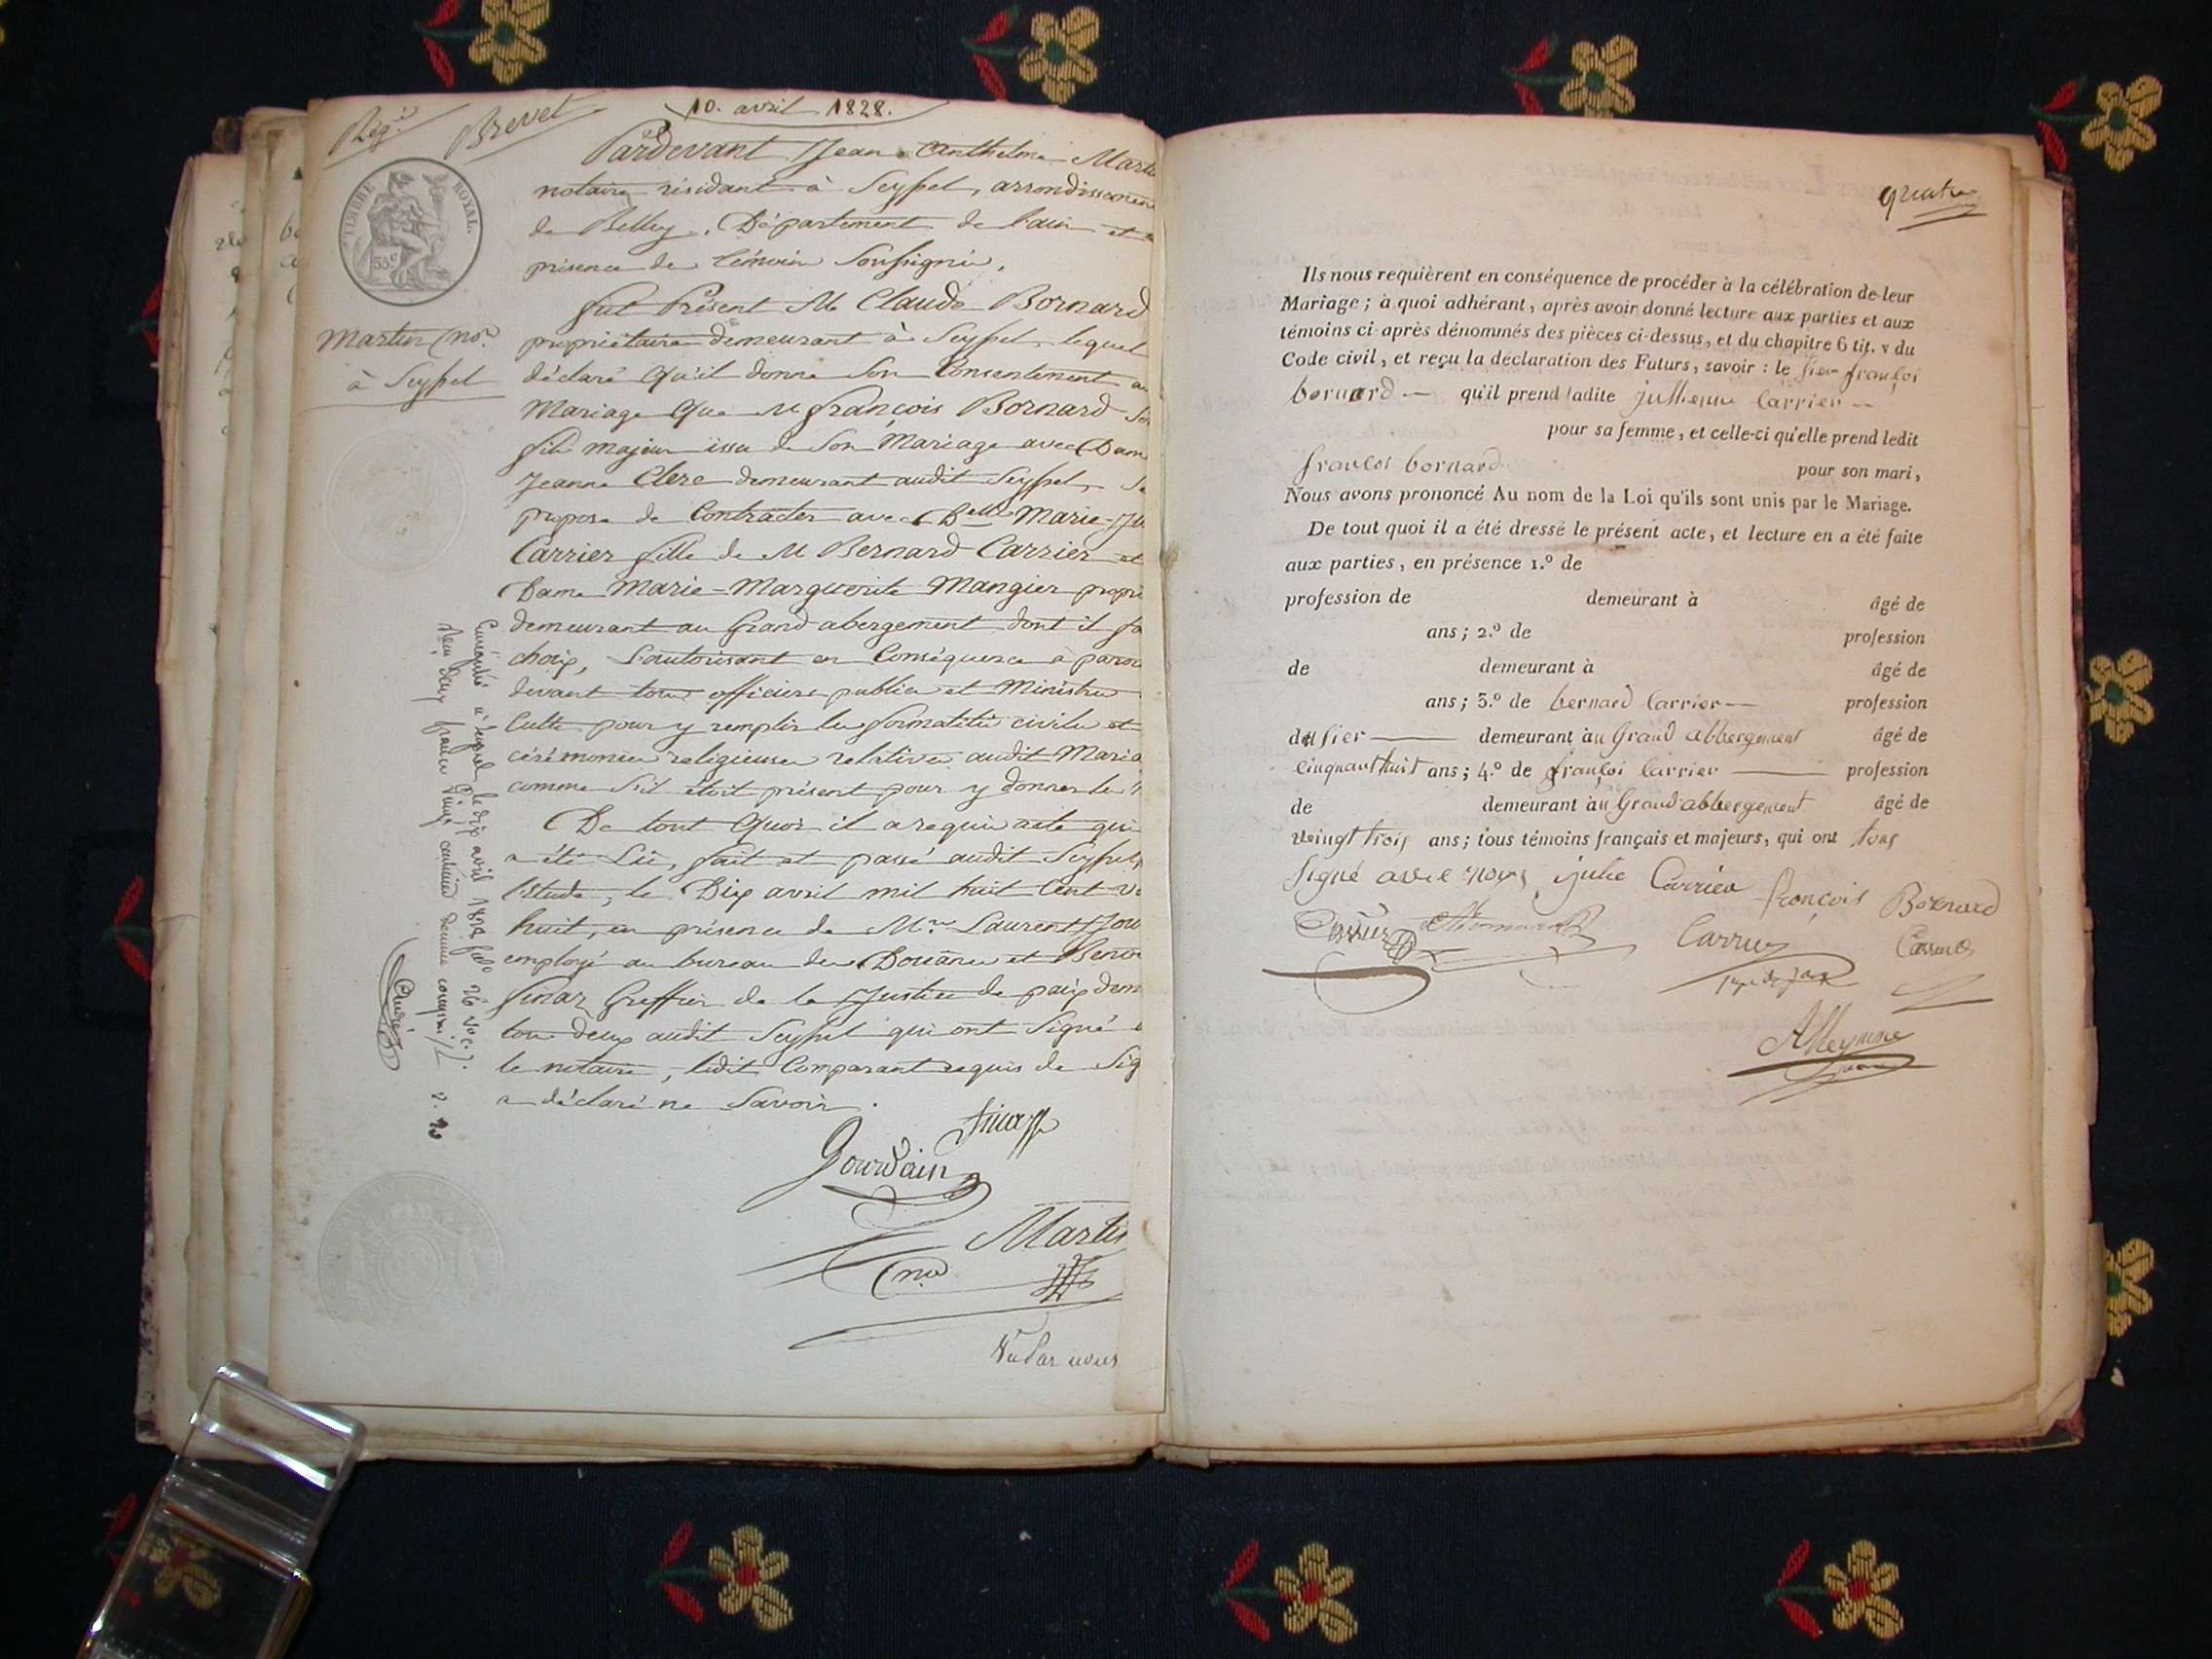 Brevet
10. avril 1828.
TIMBRE ROYAL.
35c
Martin no.re
à Seyssel
Pardevant Jean Anthelme Mart
notaire résidant à Seyssel, arrondissemen
de Belley, Département de l'ain et e
présence de témoins Soussignés.
fut Présent Mr Claude Bornard
propriétaire demeurant à Seyssel, lequel
déclaré Qu'il donne Son Consentement au
Mariage Que Mr françois Bornard So
fils majeur issu de Son Mariage avec Dam
Jeanne Clerc demeurant audit Seyssel, Se
propose de Contracter avec Delle Marie-Ju
Carrier fille de Mr Bernard Carrier et
Dame Marie-Marguerite Mangier propri
demeurant au Grand abergement dont il fa
choix, L'autorisant en Conséquence à paroi
devant tous officiers publics et Ministres
Culte pour y remplir les formalités civiles et
cérémonies religieuses relatives audit Maria
comme S'il étoit présent pour y donner les
De tout Quoi il a requis acte qui
a été Lû, fait et passé audit Seyssel,
l'étude, le Dix avril mil huit Cent vi
huit, en présence de Mrs Laurent Jou
employé au bureau des Douânes et Benoi
Sinaz Greffier de la Justice de paix dem
tous deux audit Seyssel qui ont Signé a
le notaire, ledit Comparant requis de Sig
a déclaré ne Savoir.
Gourdain
Martin
nre
Vu Par nous
Enregistré à Seyssel le dix avril 1828 folo 26 vo c. 7.
Reçu deux francs vingt centimes décime compris
quatre
Ils nous requièrent en conséquence de procéder à la célébration de leur
Mariage; à quoi adhérant, après avoir donné lecture aux parties et aux
témoins ci-après dénommés des pièces ci-dessus, et du chapitre 6 tit. v du
Code civil, et reçu la déclaration des Futurs, savoir : le sieur françoi
bornard — qu'il prend ladite jullienne Carrier —
pour sa femme, et celle-ci qu'elle prend ledit
françoi bornard pour son mari,
Nous avons prononcé Au nom de la Loi qu'ils sont unis par le Mariage.
De tout quoi il a été dressé le présent acte, et lecture en a été faite
aux parties, en présence 1.º de
profession de demeurant à âgé de
ans; 2.º de profession
de demeurant à âgé de
ans; 3.º de bernard Carrier — profession
demeurant au Grand abbergement âgé de
Cinquant huit ans; 4.º de françoi Carrier — profession
de demeurant au Grand abbergement âgé de
veingt trois ans; tous témoins français et majeurs, qui ont tous
Signé avec nous julie Carrier françois Bornard
Carrier